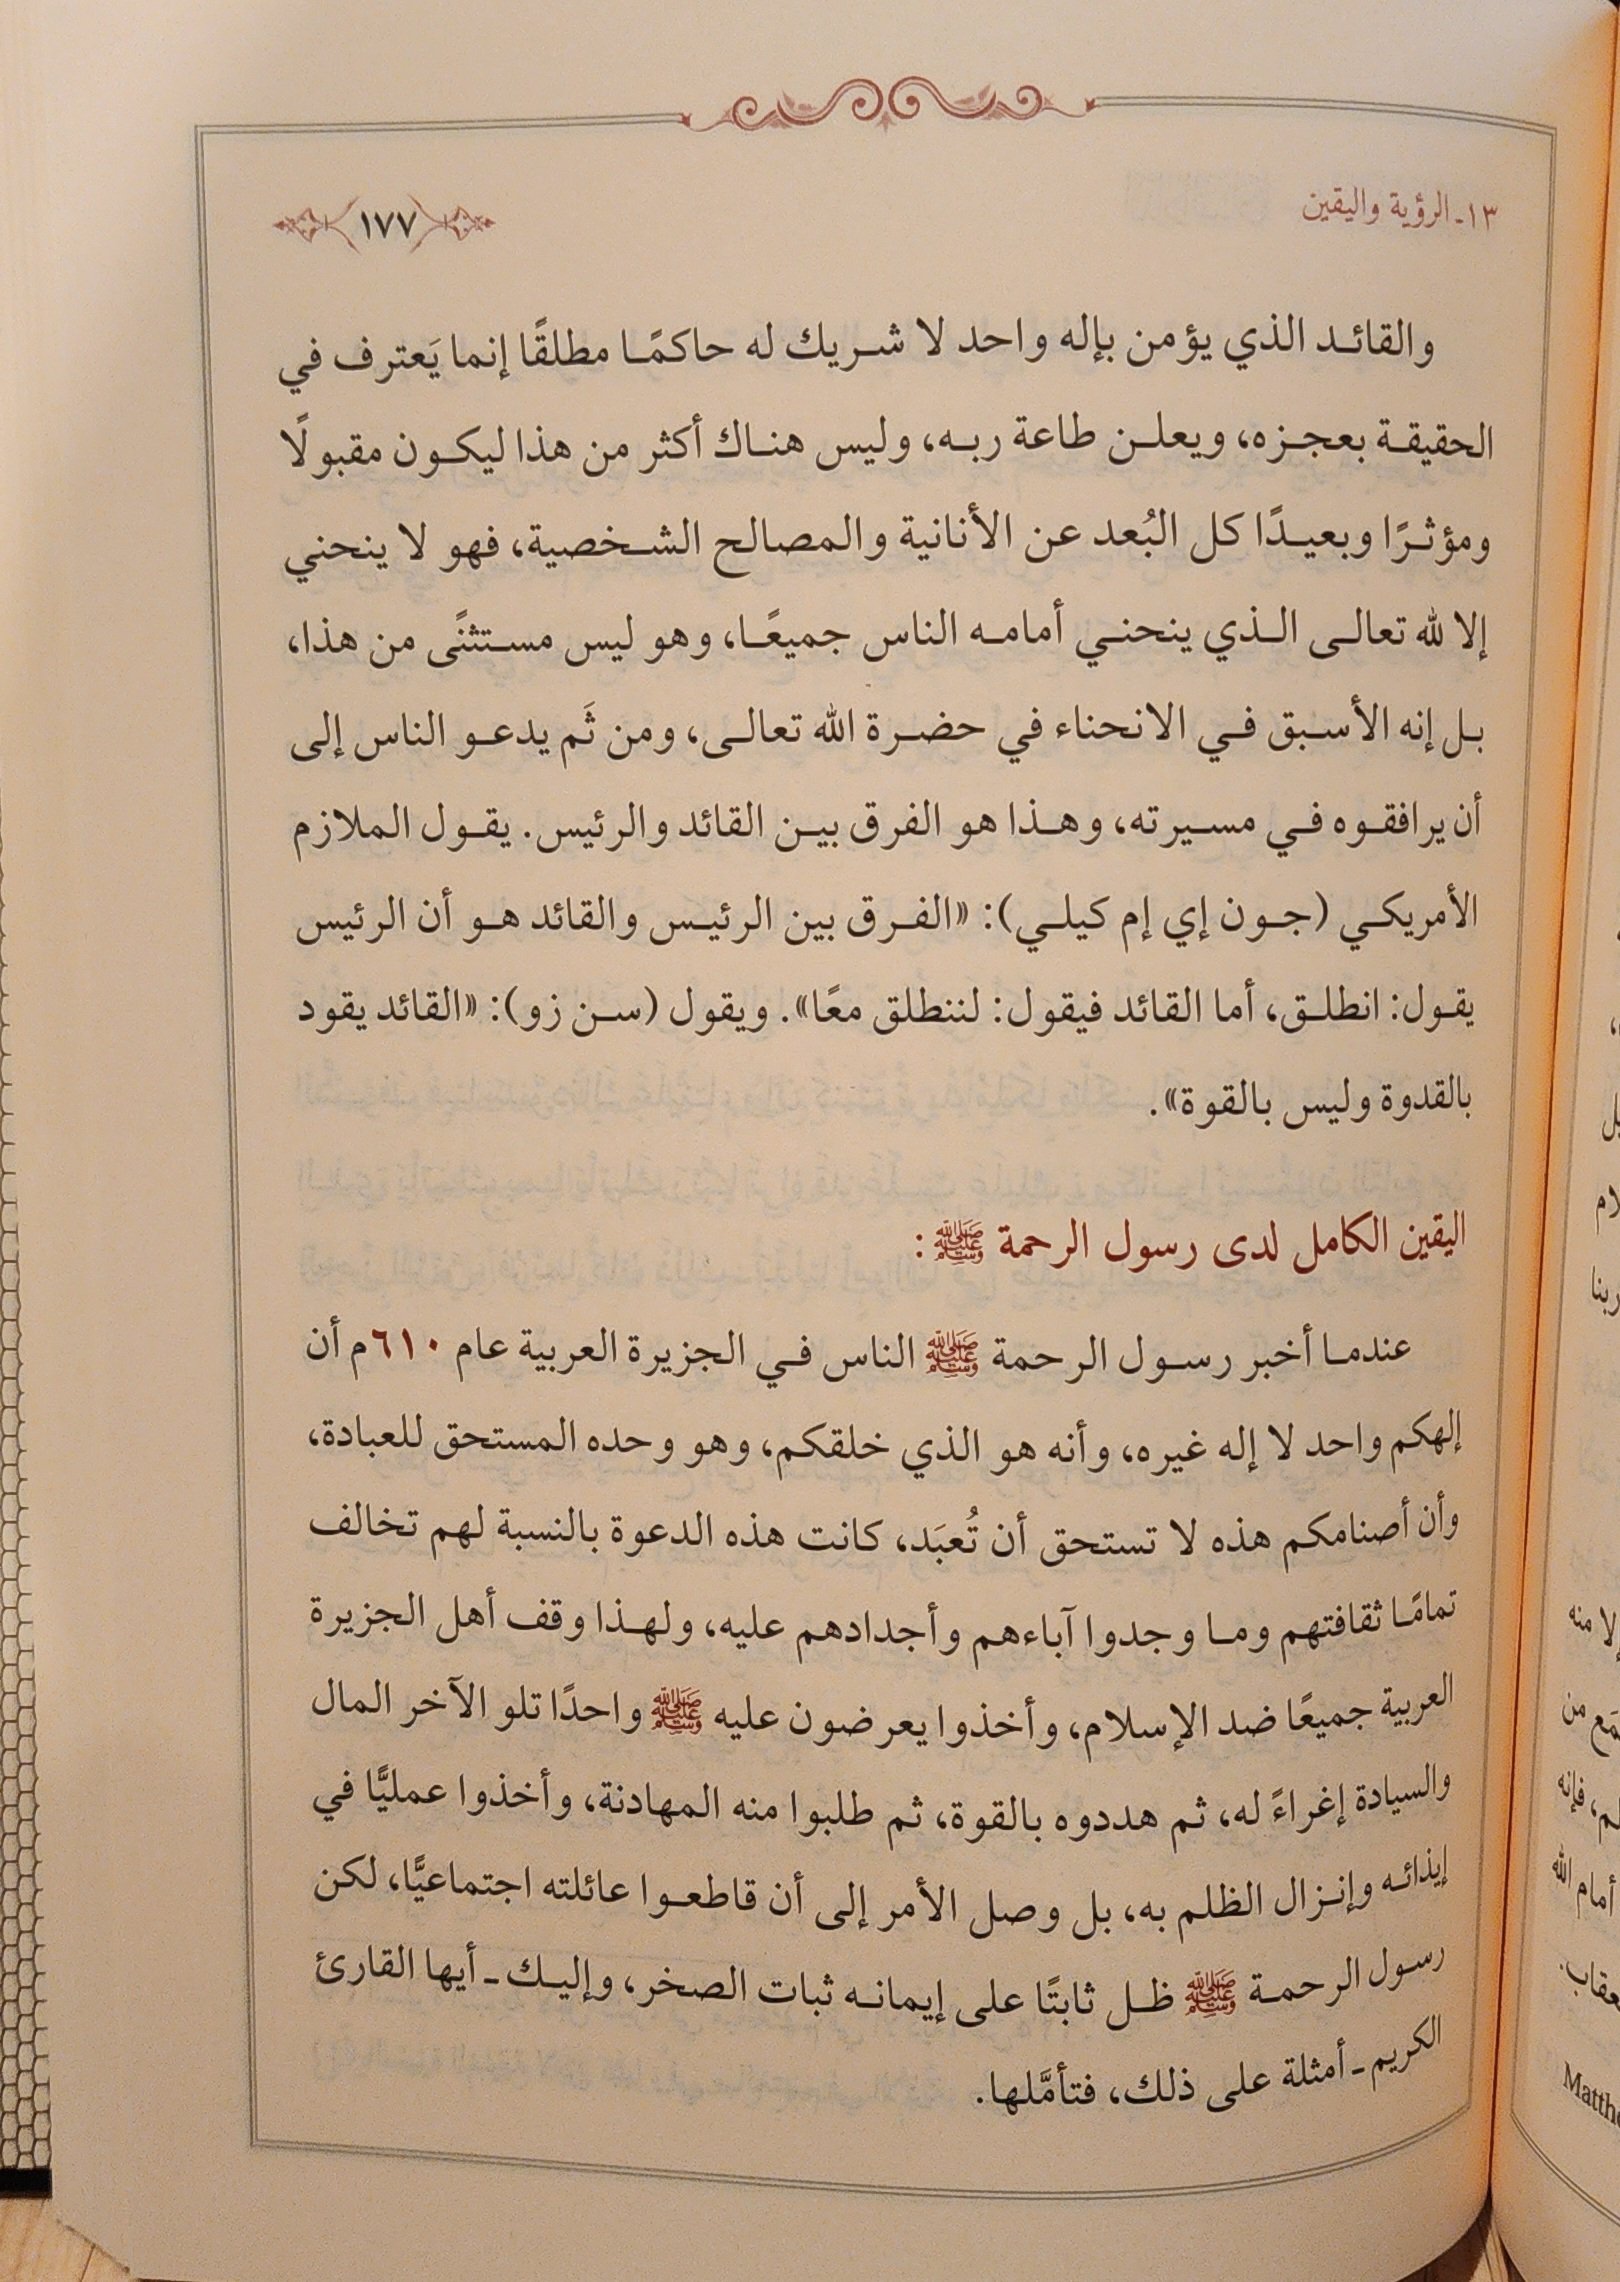 ١٣ـ الرؤية واليقين
١٧٧
والقائد الذي يؤمن بإله واحد لا شريك له حاكمًا مطلقًا إنما يَعترف في
الحقيقة بعجزه، ويعلن طاعة ربه، وليس هناك أكثر من هذا ليكون مقبولًا
ومؤثرًا وبعيدًا كل البُعد عن الأنانية والمصالح الشخصية، فهو لا ينحني
إلا لله تعالى الذي ينحني أمامه الناس جميعًا، وهو ليس مستثنًى من هذا،
بل إنه الأسبق في الانحناء في حضرة الله تعالى، ومن ثَم يدعو الناس إلى
أن يرافقوه في مسيرته، وهذا هو الفرق بين القائد والرئيس. يقول الملازم
الأمريكي (جون إي إم كيلي): «الفرق بين الرئيس والقائد هو أن الرئيس
يقول: انطلق، أما القائد فيقول: لننطلق معًا». ويقول (سن زو): «القائد يقود
بالقدوة وليس بالقوة».
اليقين الكامل لدى رسول الرحمة ﷺ:
عندما أخبر رسول الرحمة ﷺ الناس في الجزيرة العربية عام ٦١٠م أن
إلهكم واحد لا إله غيره، وأنه هو الذي خلقكم، وهو وحده المستحق للعبادة،
وأن أصنامكم هذه لا تستحق أن تُعبَد، كانت هذه الدعوة بالنسبة لهم تخالف
تمامًا ثقافتهم وما وجدوا آباءهم وأجدادهم عليه، ولهذا وقف أهل الجزيرة
العربية جميعًا ضد الإسلام، وأخذوا يعرضون عليه ﷺ واحدًا تلو الآخر المال
والسيادة إغراءً له، ثم هددوه بالقوة، ثم طلبوا منه المهادنة، وأخذوا عمليًّا في
إيذائه وإنزال الظلم به، بل وصل الأمر إلى أن قاطعوا عائلته اجتماعيًّا، لكن
رسول الرحمة ﷺ ظل ثابتًا على إيمانه ثبات الصخر، وإليك ـ أيها القارئ
الكريم ـ أمثلة على ذلك، فتأمَّلها.